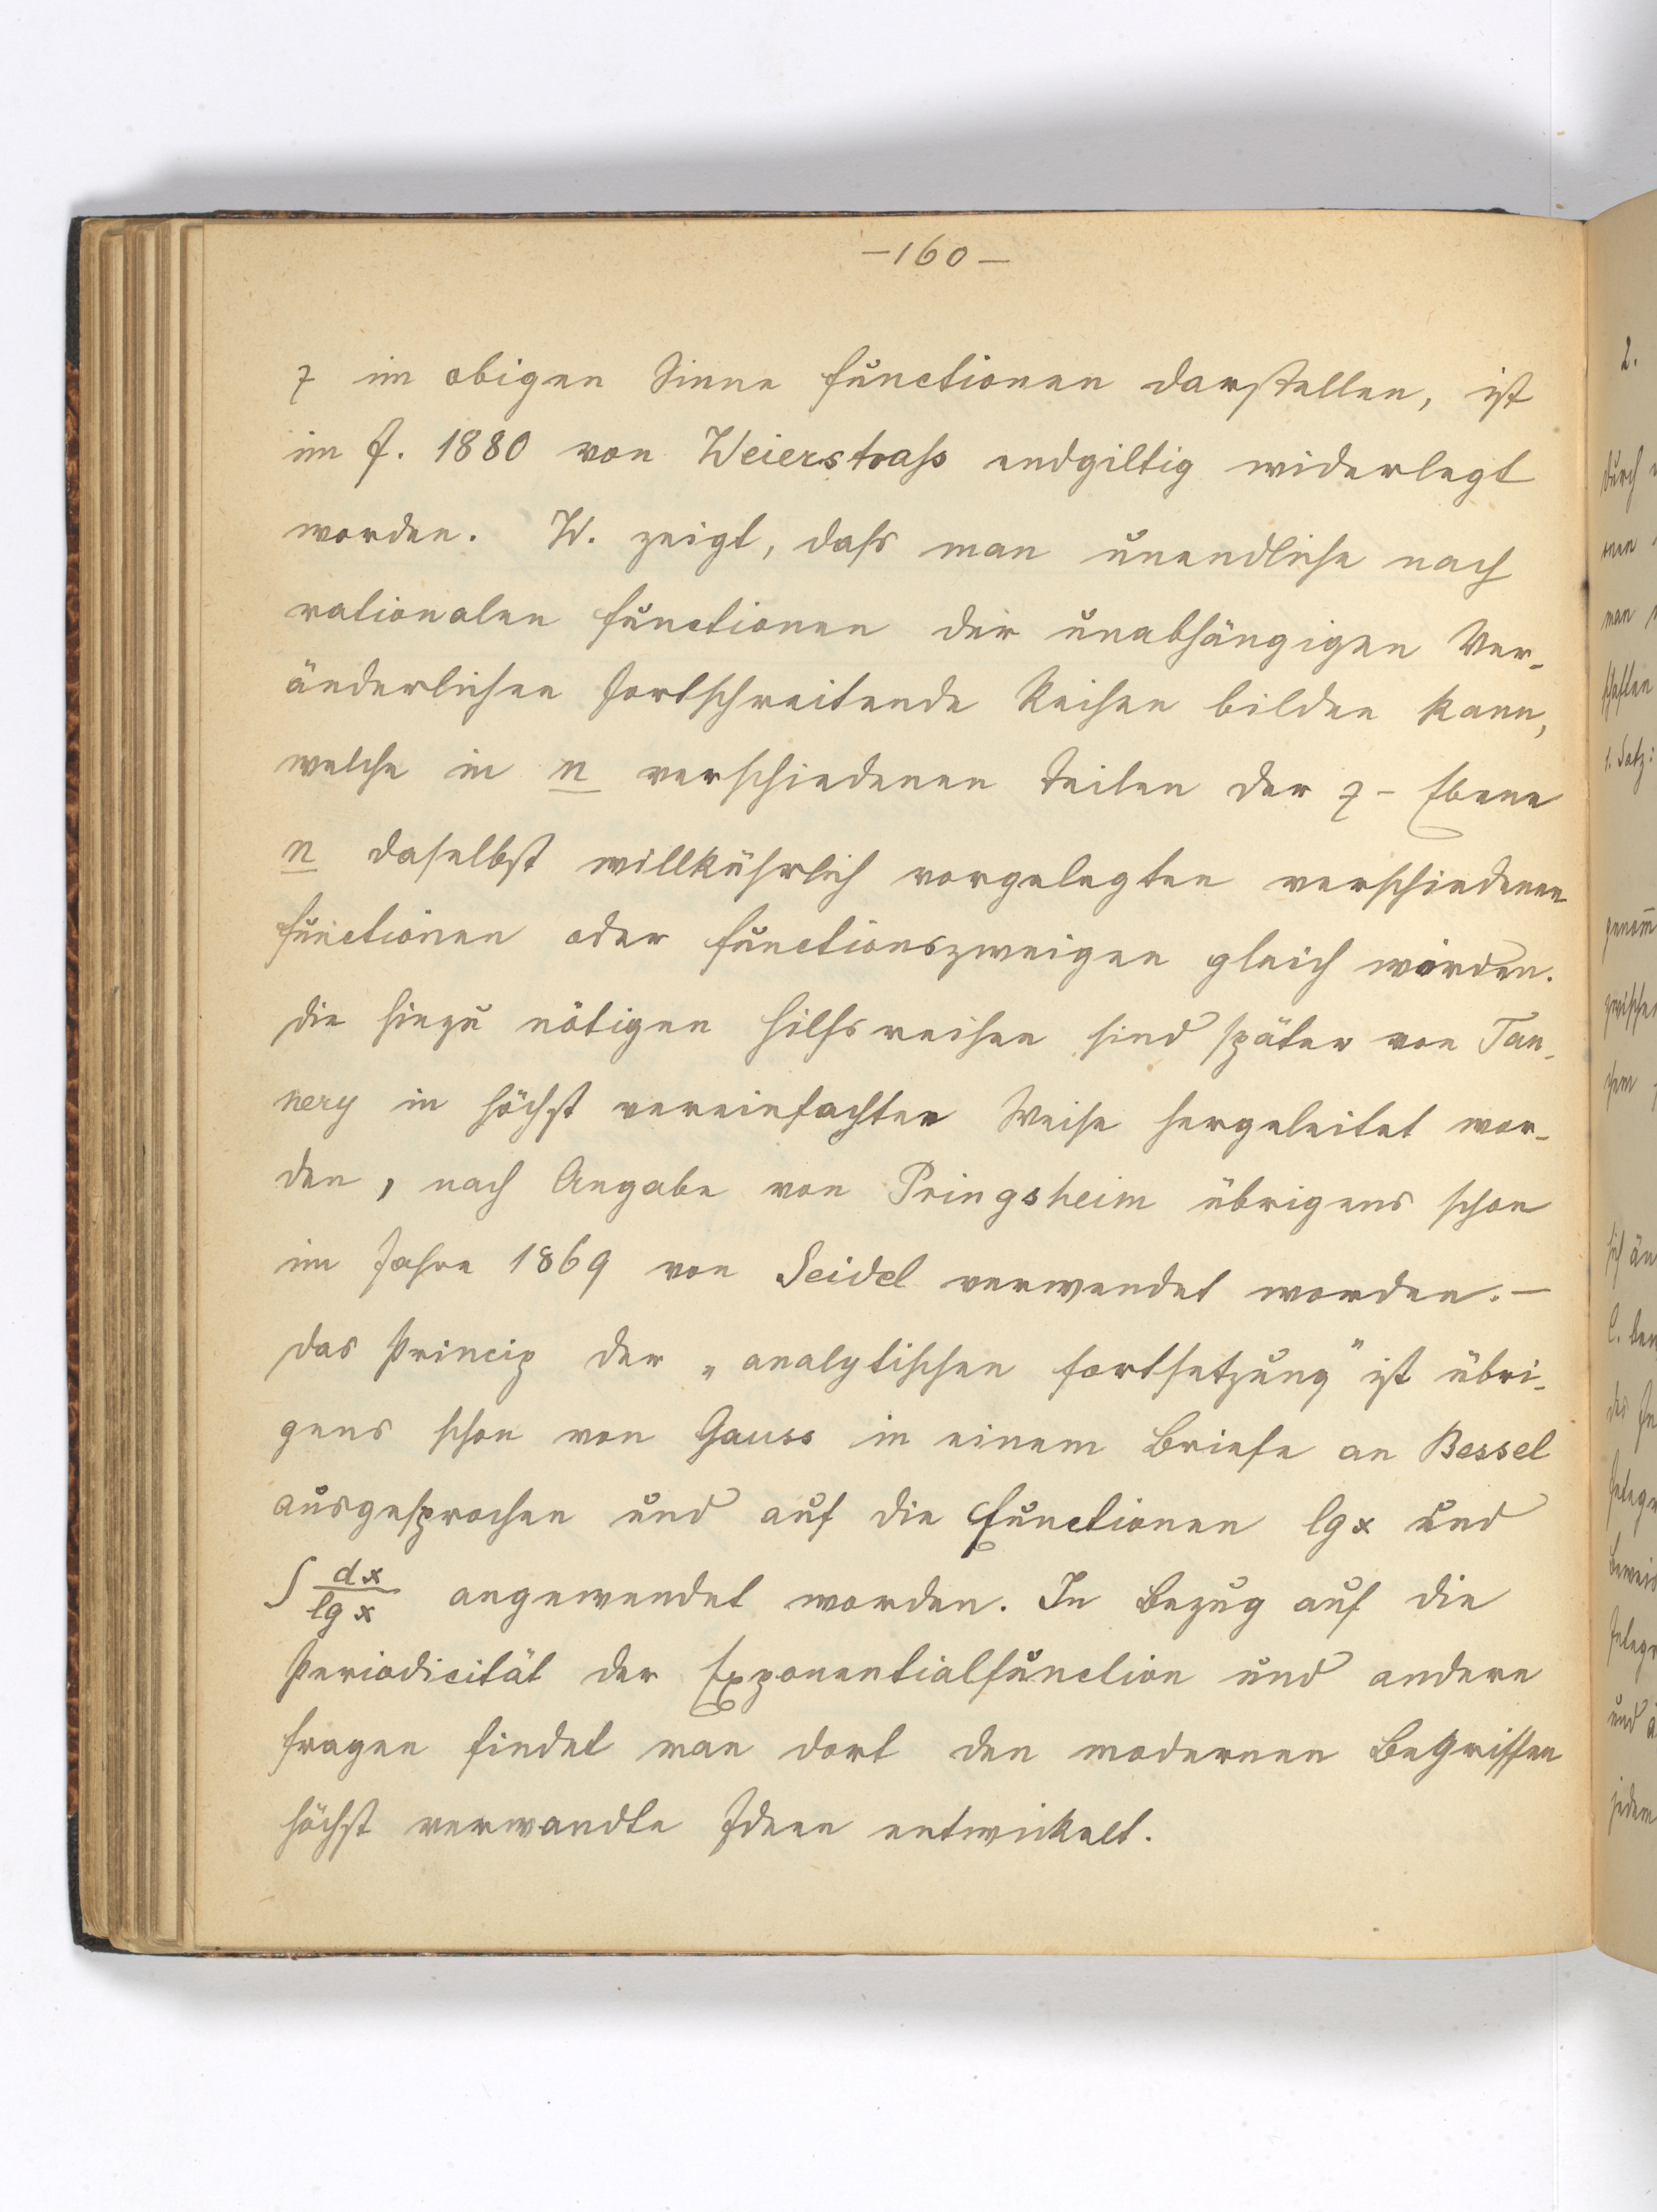 –160–
z im obigen Sinne Functionen darstellen, ist
im J. 1880 von Weierstraß endgiltig widerlegt
worden. W. zeigt, daß man unendliche nach
rationalen Functionen der unabhängigen Ver-
änderlichen fortschreitende Reihen bilden kann,
welche in n verschiedenen Teilen der z-Ebene
n daselbst willkührlich vorgelegten verschiedenen
Functionen oder Functionszweigen gleich würden.
Die hiezu nötigen Hilfsreihen sind später von Tan-
nery in höchst vereinfachter Weise hergeleitet wor-
den, nach Angabe von Pringsheim übrigens schon
im Jahre 1869 von Seidel verwendet worden.–
Das Princip der „analytischen Fortsetzung" ist übri-
gens schon von Gauss in einem Briefe an Bessel
ausgesprochen und auf die Functionen lg x und
∫ dx/lg x angewendet worden. In Bezug auf die
Periodicität der Exponentialfunction und andere
Fragen findet man dort den modernen Begriffen
höchst verwandte Ideen entwickelt.
2.
durch
man
1. Satz:
genom̄
sich än
und
jedem